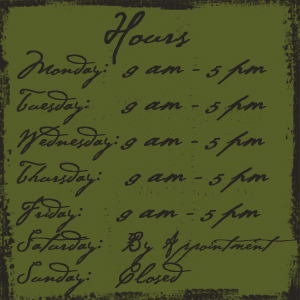 Hours
Monday: 9 am - 5 pm
Tuesday: 9 am - 5 pm
Wednesday: 9 am - 5 pm
Thursday: 9 am - 5 pm
Friday: 9 am - 5 pm
Saturday: By Appointment
Sunday: Closed